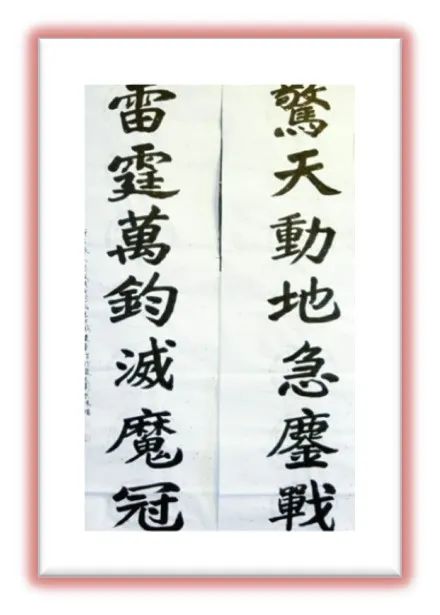 驚天動地急鏖戰
雷霆萬鈞滅魔冠